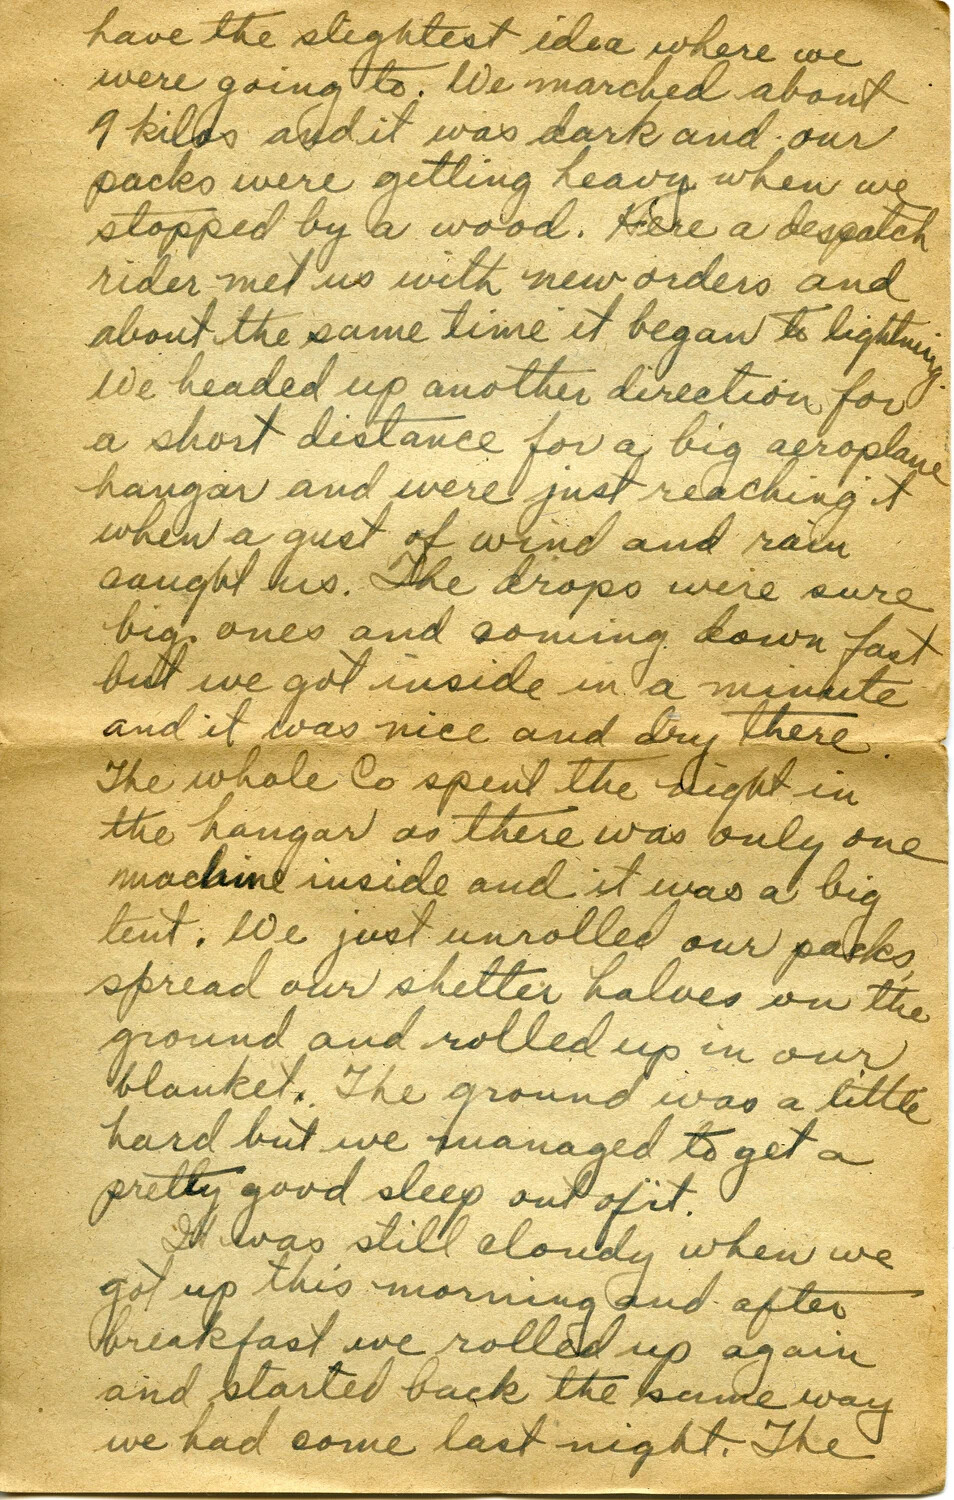 have the slightest idea where we
were going to. We marched about
9 kilos and it was dark and our
packs were getting heavy when we
stopped by a wood. Here a despatch
rider met us with new orders and
about the same time it began to lightning.
We headed up another direction for
a short distance for a big aeroplane
hangar and were just reaching it
when a gust of wind and rain
caught us. The drops were sure
big ones and coming down fast
but we got inside in a minute
and it was nice and dry there.
The whole Co spent the night in
the hangar as there was only one
machine inside and it was a big
tent. We just unrolled our packs,
spread our shelter halves on the
ground and rolled up in our
blanket. The ground was a little
hard but we managed to get a
pretty good sleep out of it.
It was still cloudy when we
got up this morning and after
breakfast we rolled up again
and started back the same way
we had come last night. The